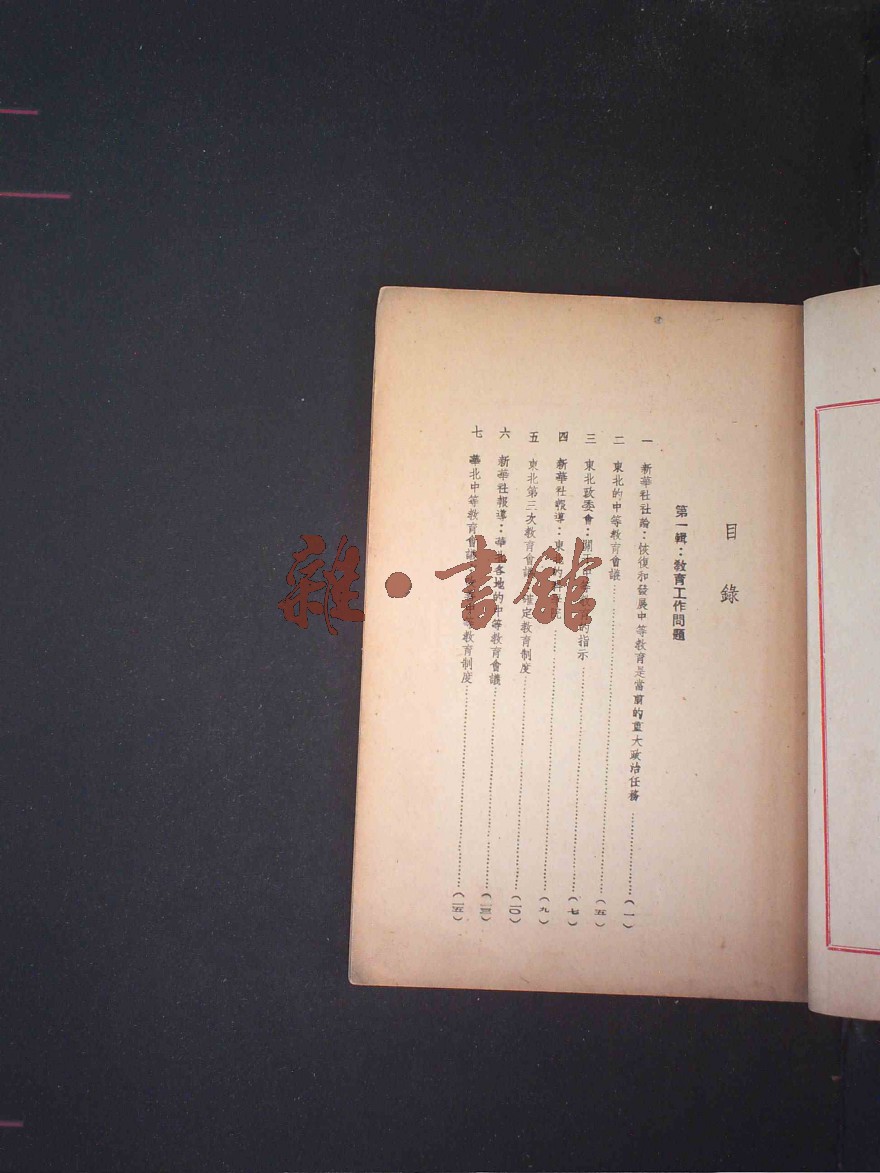 目錄
第一輯：教育工作問題
一 新華社社論：恢復和發展中等教育是當前的重大政治任務……（一）
二 東北的中等教育會議……（五）
三 東北政委會：關于中等教育的指示……（七）
四 新華社報導：東北的……院……（九）
五 東北第三次教育會議確定教育制度……（一〇）
六 新華社報導：華北各地的中等教育會議……（一三）
七 華北中等教育會議……中等教育制度……（一五）
雜·書館